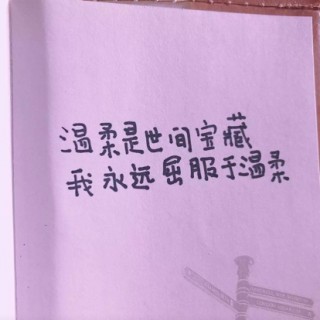 温柔是世间宝藏
我永远屈服于温柔